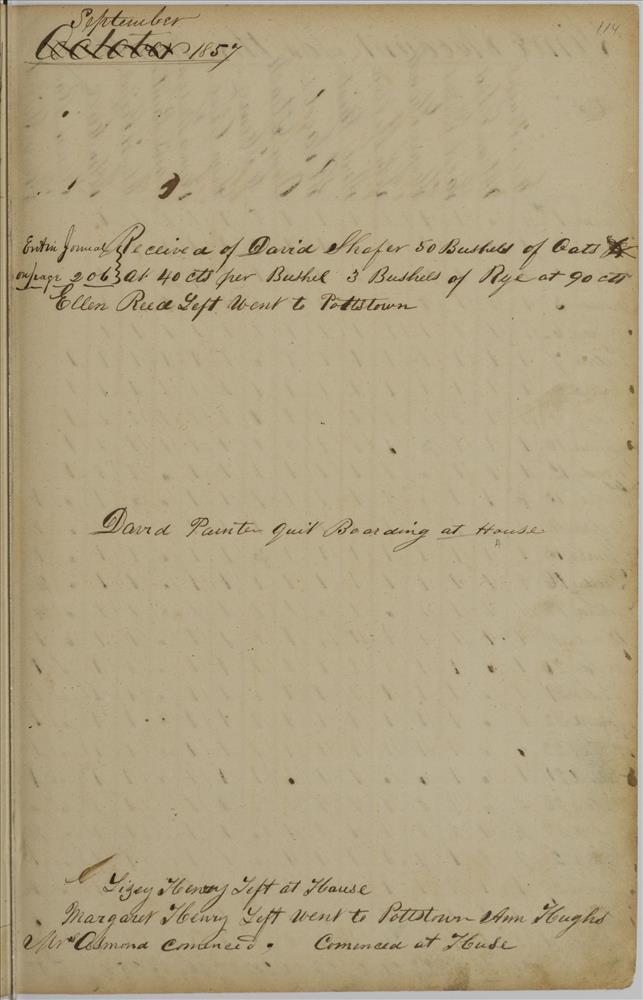 114
September
October 1857
Ent in Journal Received of David Shafer 50 Bushels of Oats
on page 206 at 40 cts per Bushel 3 Bushels of Rye at 90 cts
Ellen Reed Left Went to Pottstown
David Painter quit Boarding at House
Lizey Henry Left at House
Margaret Henry Left Went to Pottstown Ann Hughs
Mrs Comenced. Comenced at Huse